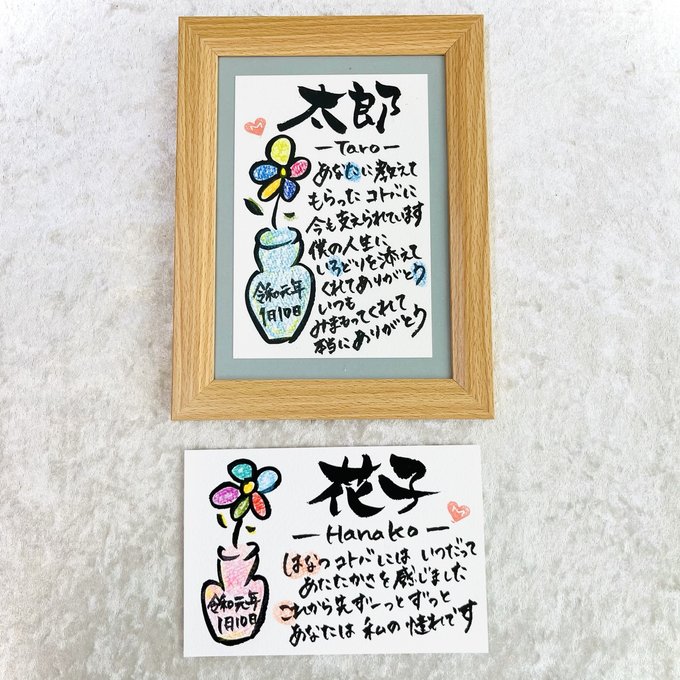 太郎
ーTaroー
あなたに教えて
もらったコトバに
今も支えられています
僕の人生に
いろどりを添えて
くれてありがとう
いつも
みまもってくれて
本当にありがとう
令和元年
1月10日
花子
ーHanakoー
はなつコトバには いつだって
あたたかさを感じました
これから先ずーっとずっと
あなたは 私の憧れです
令和元年
1月10日